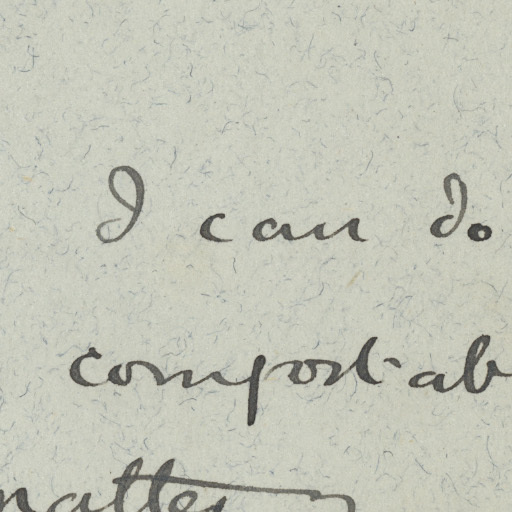 I can do
comfortab
matter